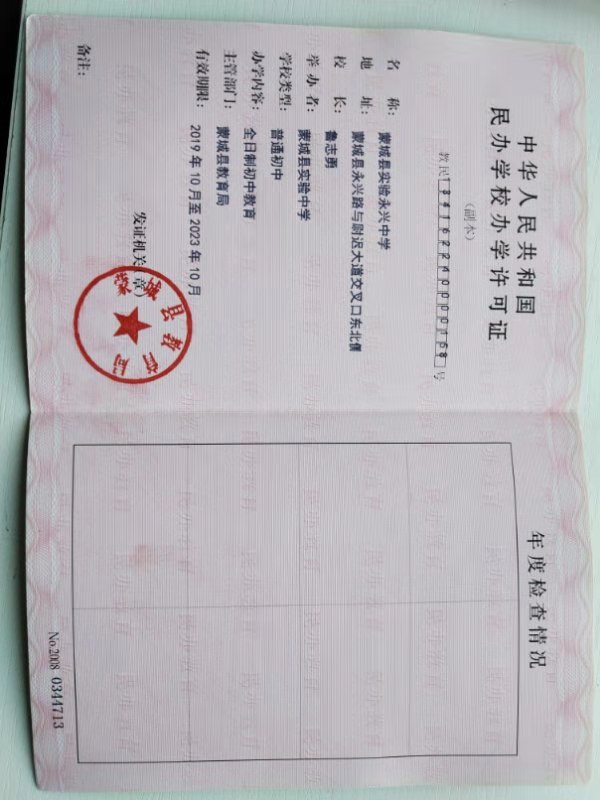 中华人民共和国
民办学校办学许可证
(副本)
教民134162240000168号
名称：蒙城县实验永兴中学
地址：蒙城县永兴路与尉迟大道交叉口东北侧
校长：鲁志勇
举办者：蒙城县实验中学
学校类型：普通初中
办学内容：全日制初中教育
主管部门：蒙城县教育局
有效期限：2019年10月至2023年10月
发证机关（章）
蒙城县教育局
备注：
年度检查情况
No.2008 0344713